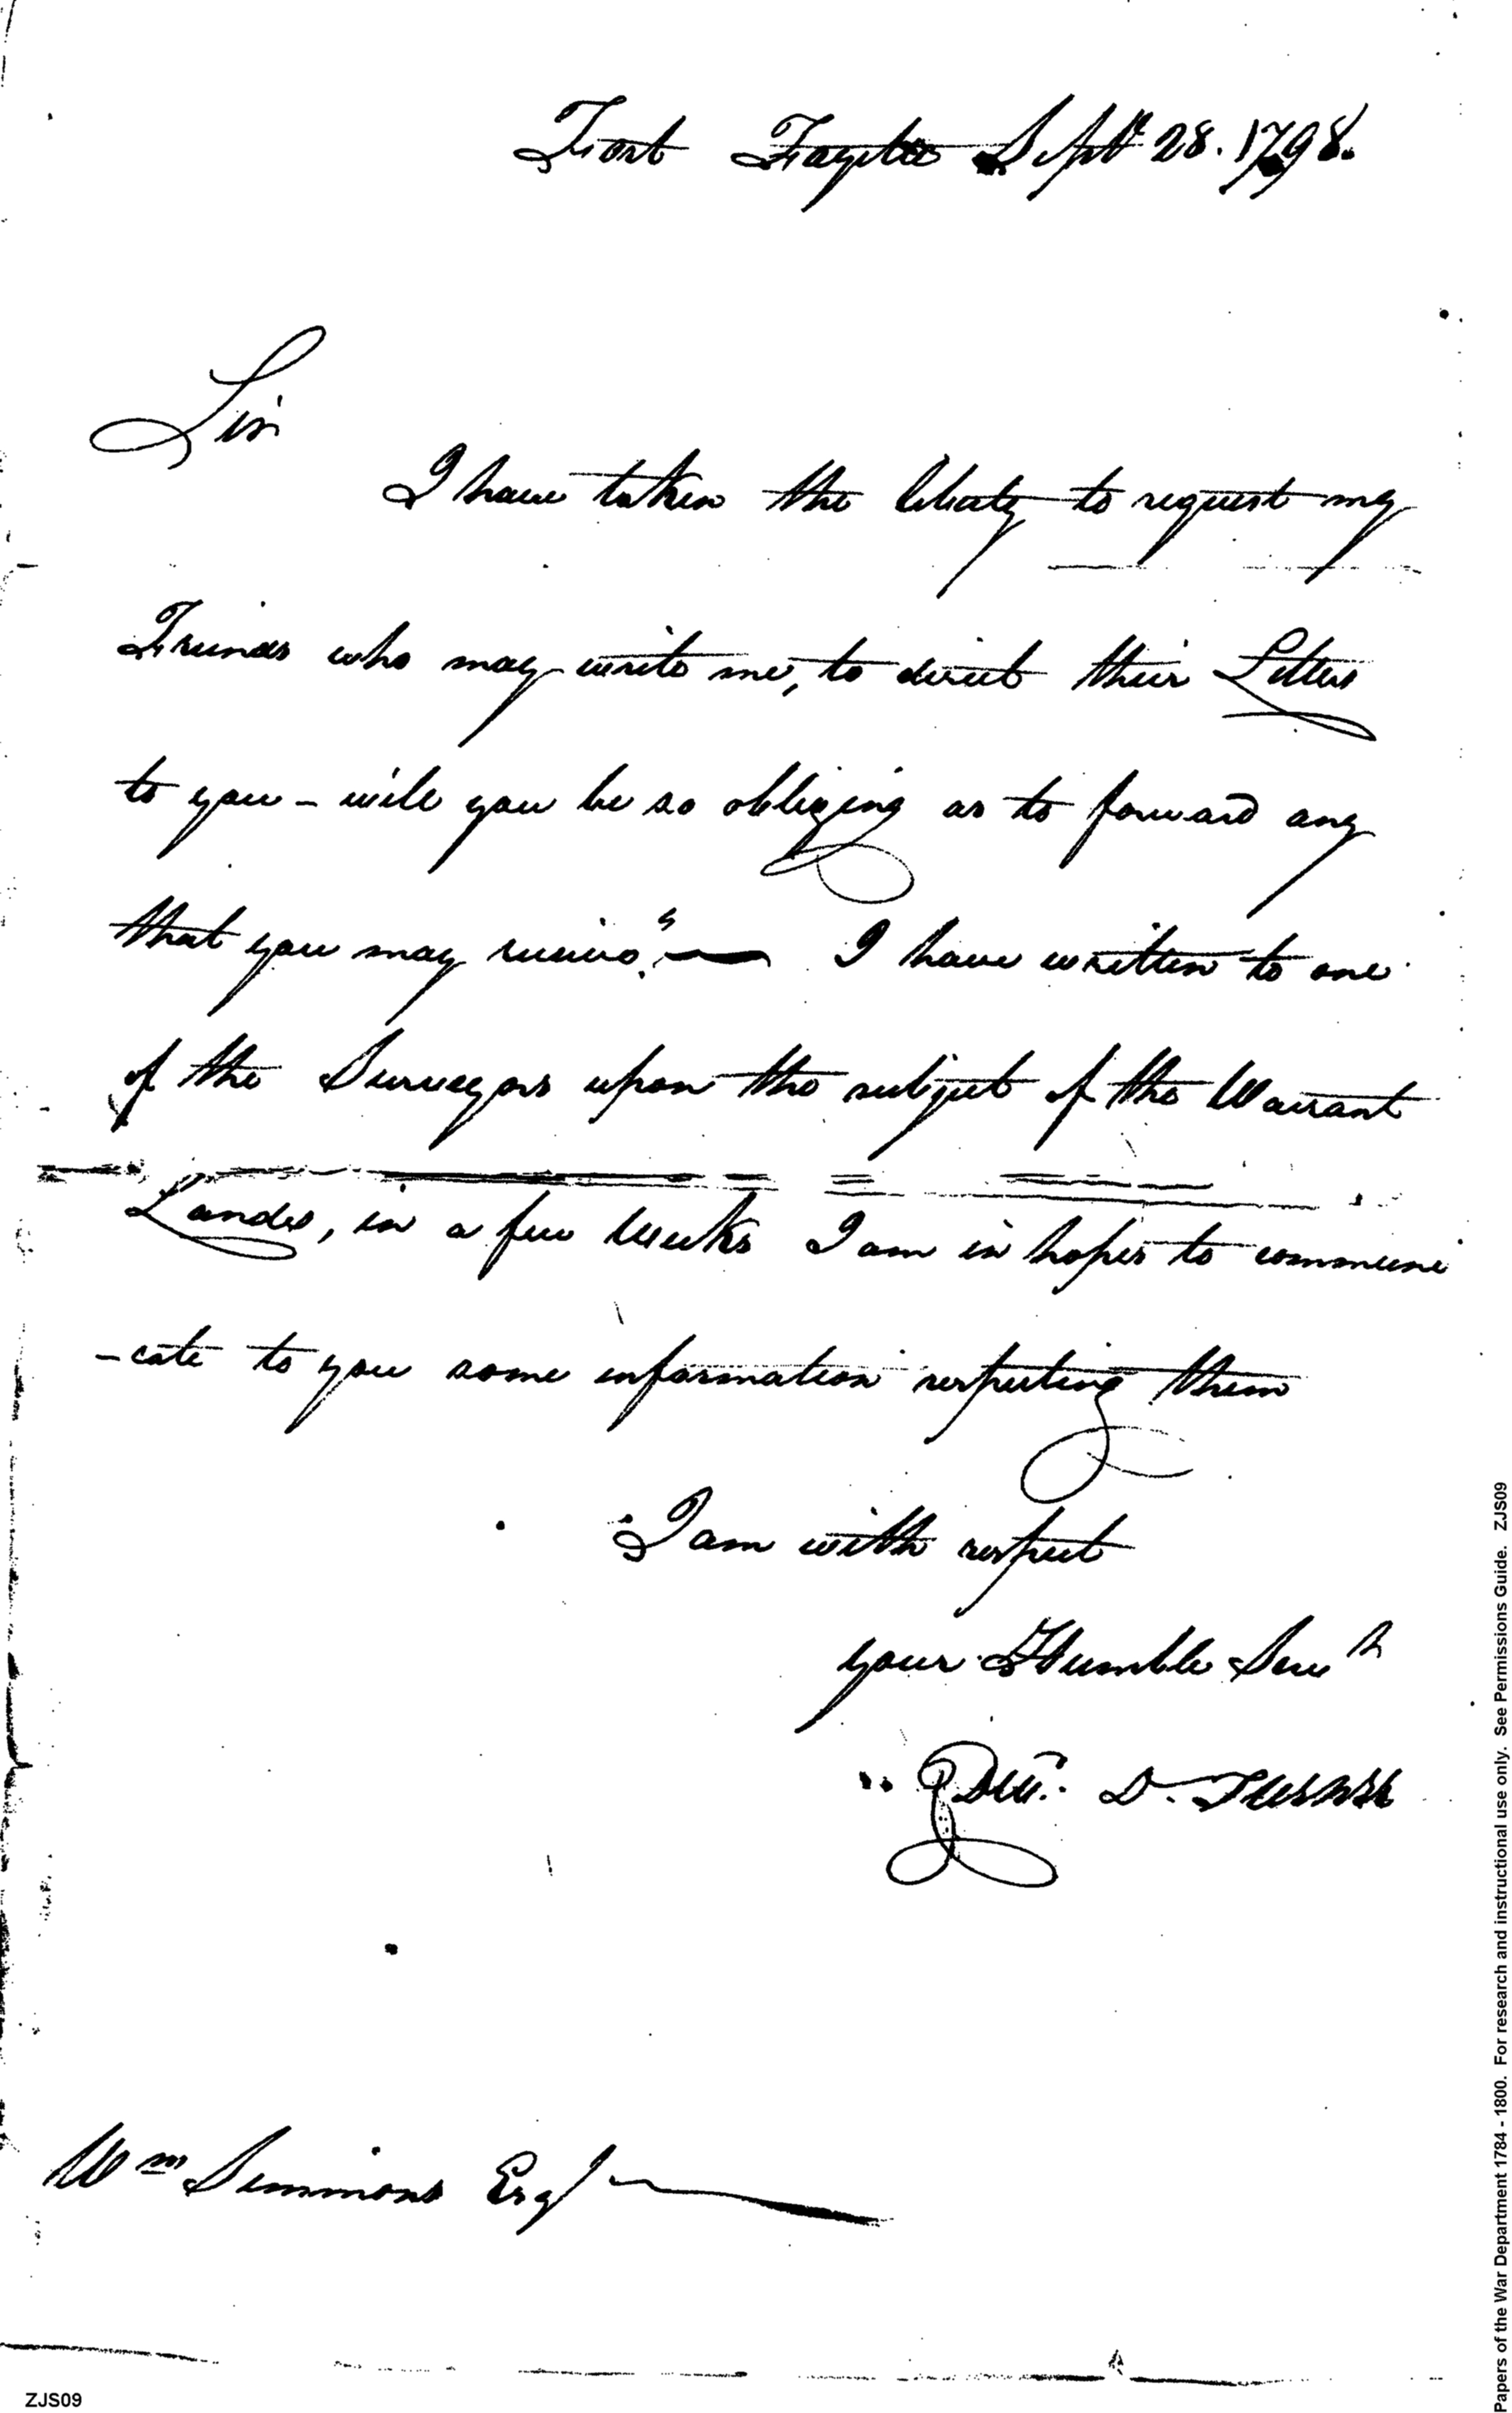 Fort Fayette Sept 28. 1798.
Sir
I have taken the liberty to request my
Friends who may write me, to direct their Letters
to you - will you be so obliging as to forward any
that you may receive". — I have written to one
of the Surveyors upon the subject of the Warrant
Landes, in a few Weeks I am in hopes to communi
-cate to you some information respecting them
I am with respect
your Humble Servt
Edw. D. Turner
Wm Simmons Esq
ZJS09
Papers of the War Department 1784 - 1800. For research and instructional use only. See Permissions Guide. ZJS09